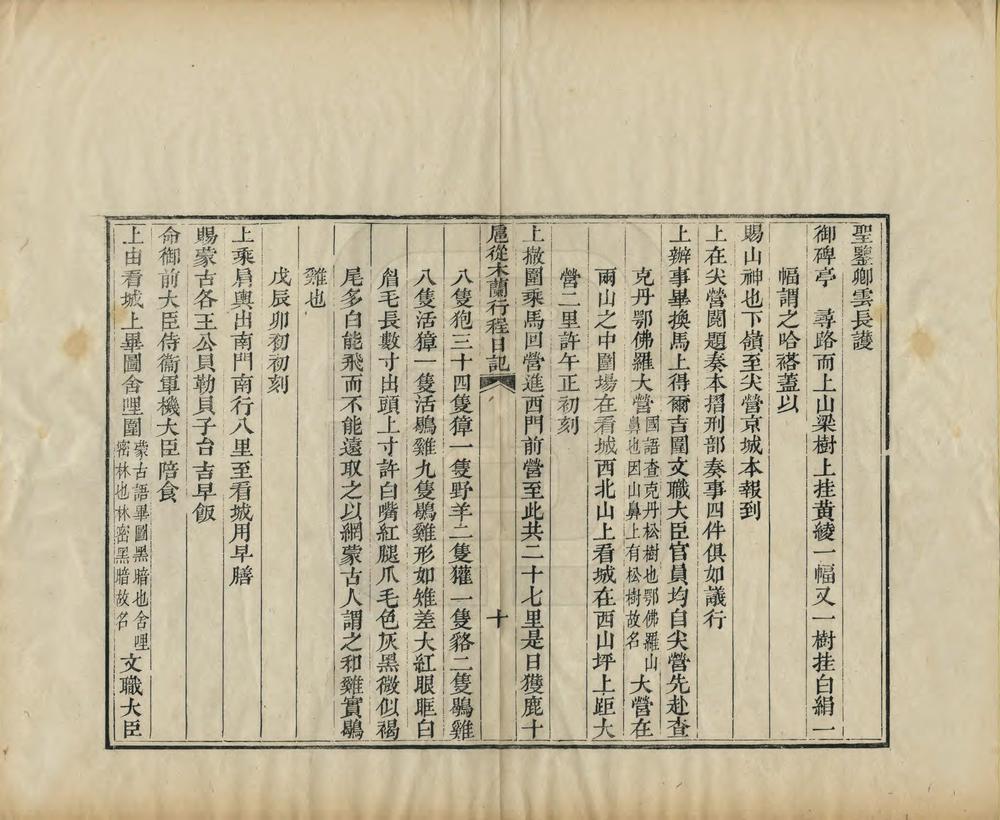 聖鑒卿雲長護
御碑亭　尋路而上山梁樹上挂黃綾一幅又一樹挂白絹一
幅謂之哈褡蓋以
賜山神也下嶺至尖營京城本報到
上在尖營閱題奏本摺刑部奏事四件俱如議行
上辦事畢換馬上得爾吉圍文職大臣官員均自尖營先赴查
克丹鄂佛羅大營國語查克丹松樹也鄂佛羅山鼻也因山鼻上有松樹故名大營在
兩山之中圍場在看城西北山上看城在西山坪上距大
營二里許午正初刻
上撤圍乘馬回營進西門前營至此共二十七里是日獲鹿十
扈從木蘭行程日記　十
八隻狍三十四隻獐一隻野羊二隻獾一隻貉二隻鶡雞
八隻活獐一隻活鶡雞九隻鶡雞形如雉差大紅眼眶白
眉毛長數寸出頭上寸許白嘴紅腿爪毛色灰黑微似褐
尾多白能飛而不能遠取之以網蒙古人謂之和雞實鶡
雞也
戊辰卯初初刻
上乘肩輿出南門南行八里至看城用早膳
賜蒙古各王公貝勒貝子台吉早飯
命御前大臣侍衞軍機大臣陪食
上由看城上畢圖舍哩圍蒙古語畢圖黑暗也舍哩密林也林密黑暗故名文職大臣